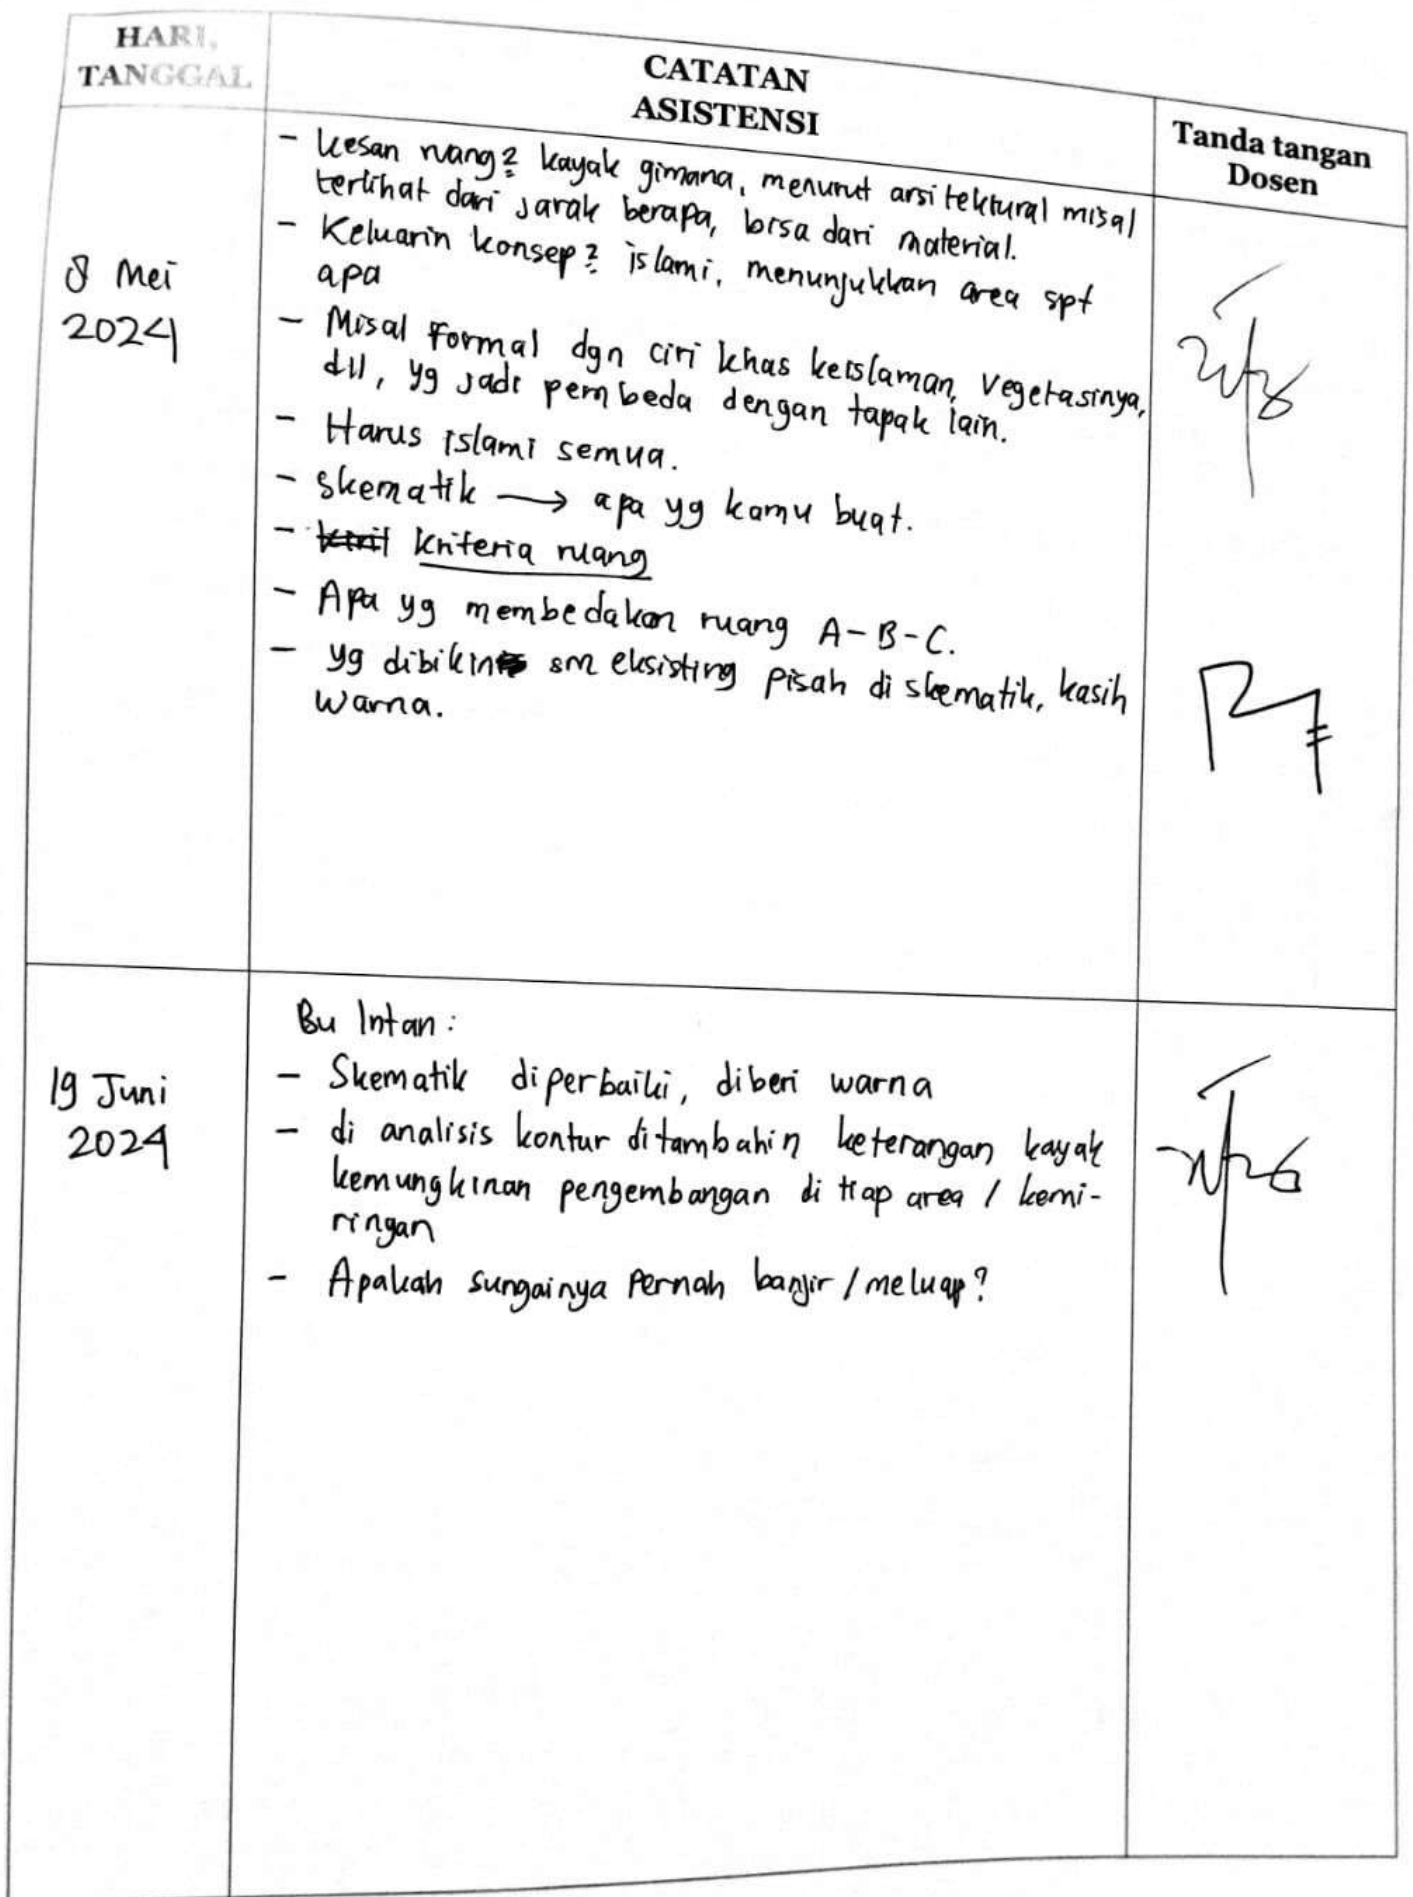 HARI,
TANGGAL
CATATAN
ASISTENSI
Tanda tangan
Dosen
8 Mei
2024
- kesan ruang2 kayak gimana, menurut arsitektural misal
terlihat dari jarak berapa, bisa dari material.
- Keluarin konsep2 islami, menunjukkan area spt
apa
- Misal Formal dgn ciri khas keislaman, vegetasinya,
dll, yg jadi pembeda dengan tapak lain.
- Harus islami semua.
- Skematik → apa yg kamu buat.
- kriteria ruang
- Apa yg membedakan ruang A-B-C.
- yg dibikin sm eksisting pisah di skematik, kasih
warna.
19 Juni
2024
Bu Intan:
- Skematik diperbaiki, diberi warna
- di analisis kontur ditambahin keterangan kayak
kemungkinan pengembangan di tiap area / kemi-
ringan
- Apakah sungainya Pernah banjir / meluap?